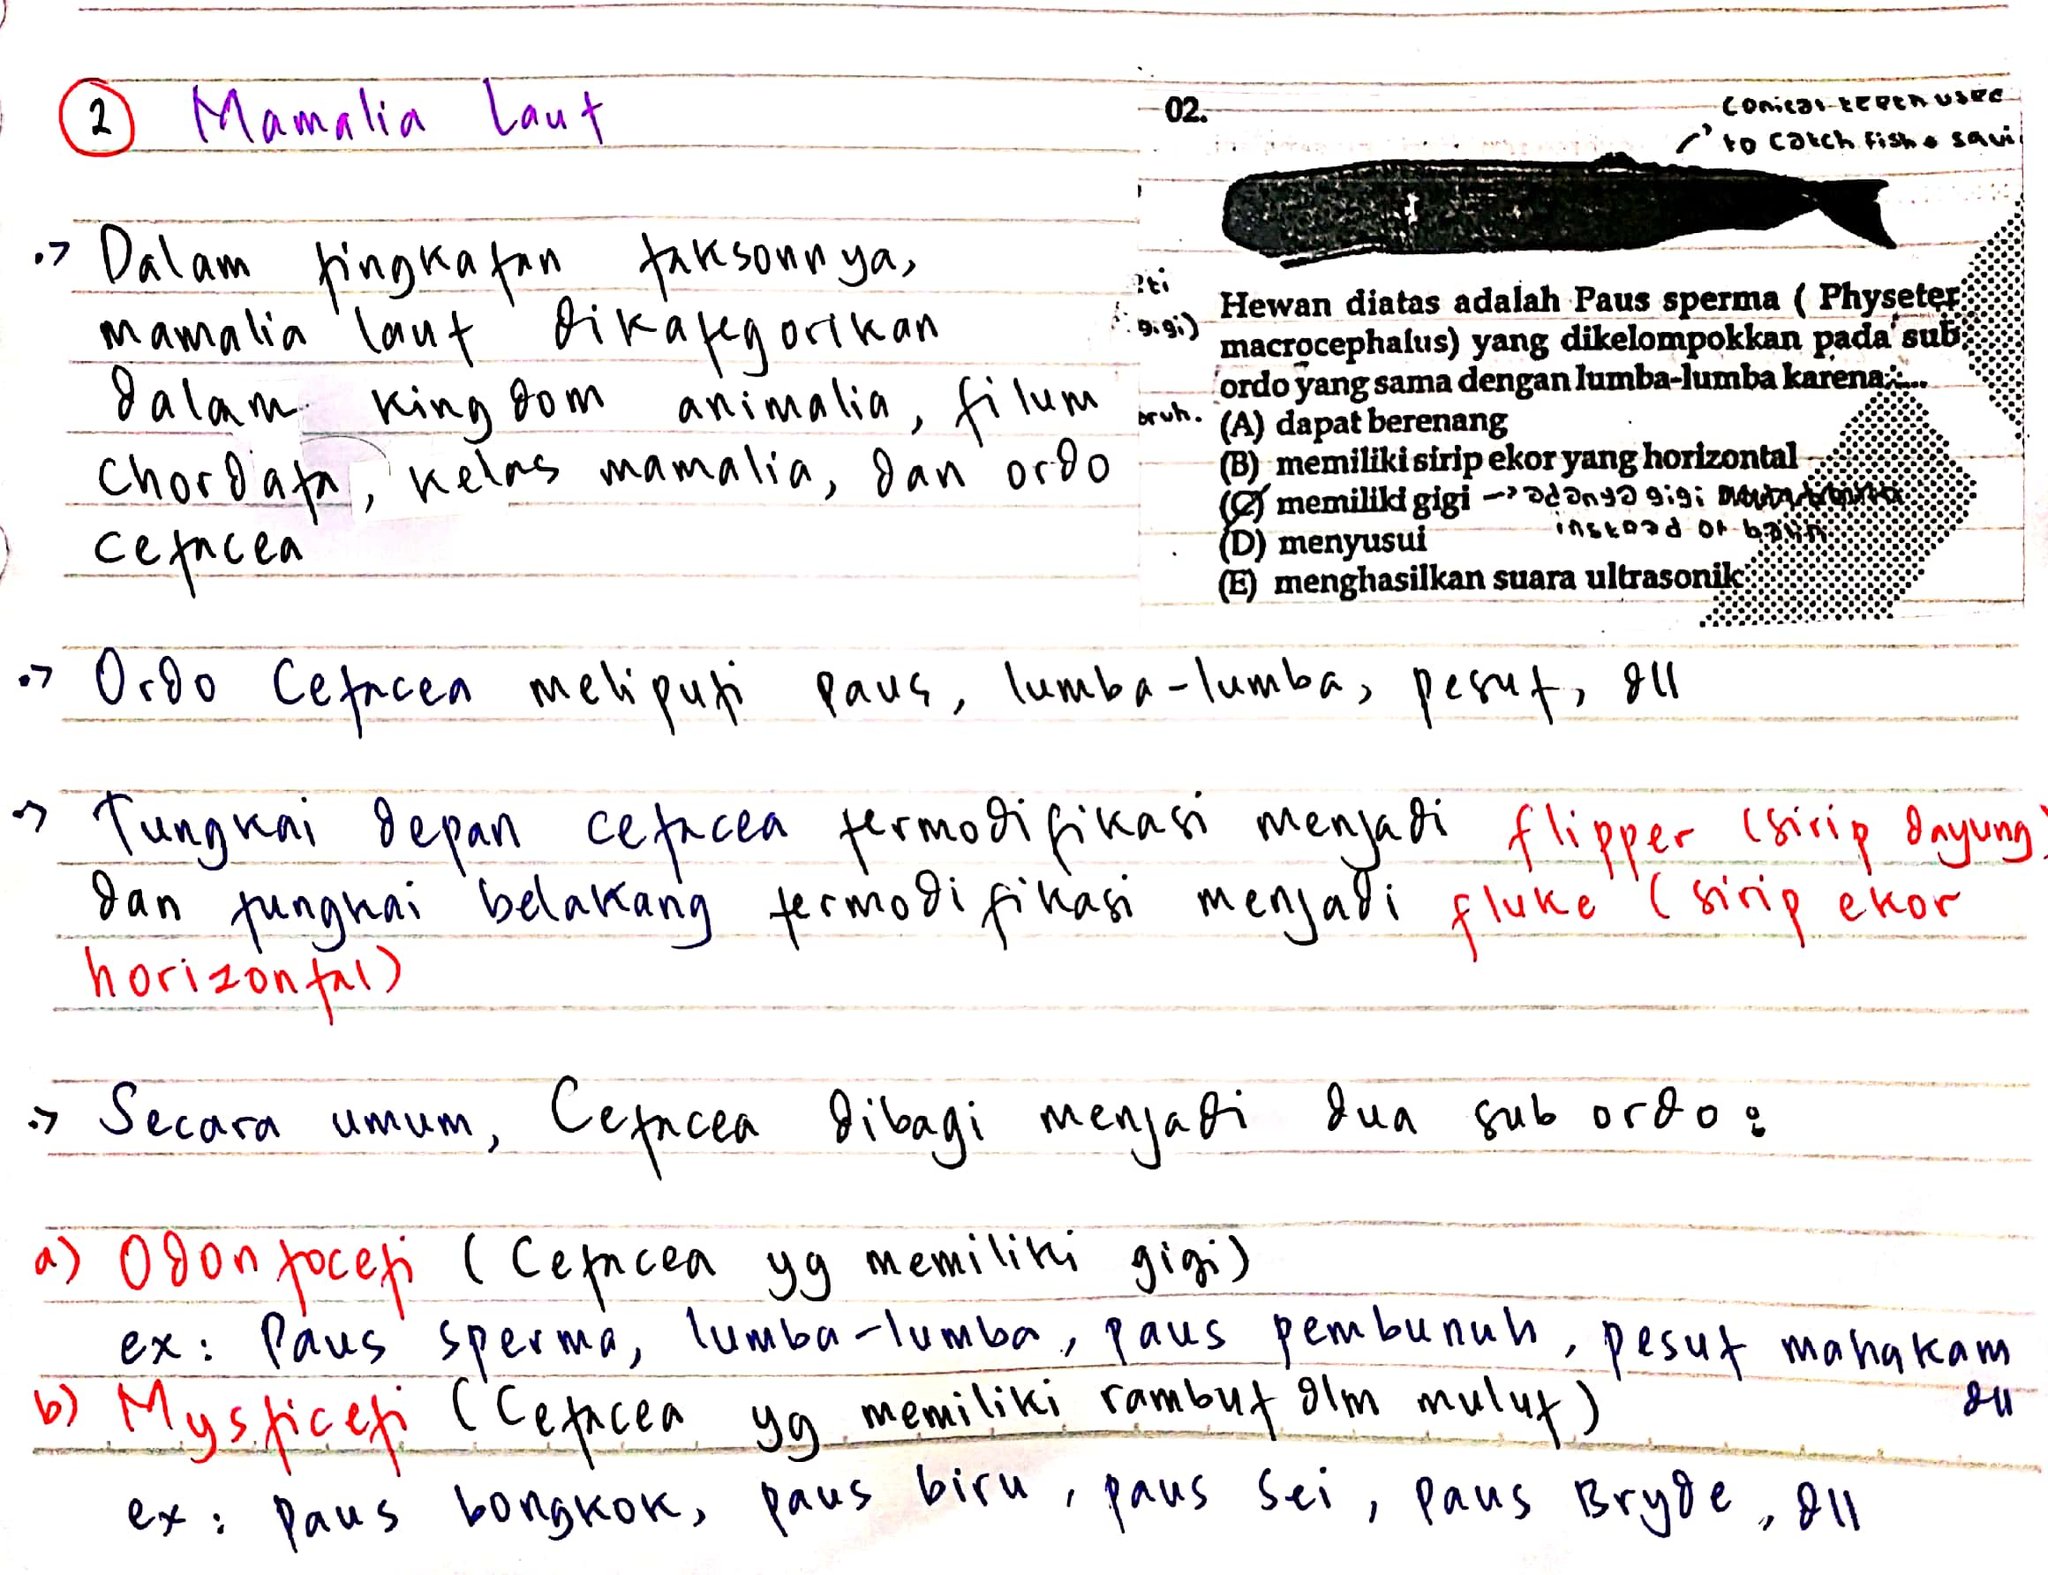 2 Mamalia Laut
-> Dalam tingkatan taksonnya,
mamalia laut dikategorikan
dalam kingdom animalia, filum
Chordata, kelas mamalia, dan ordo
cetacea
02.
conical teeth used
to catch fish &
Hewan diatas adalah Paus sperma ( Physeter
macrocephalus) yang dikelompokkan pada sub
ordo yang sama dengan lumba-lumba karena:...
(A) dapat berenang
(B) memiliki sirip ekor yang horizontal
(C) memiliki gigi -> adanya gigi
instead of
(D) menyusui
(E) menghasilkan suara ultrasonik
gigi)
bruh.
-> Ordo Cetacea meliputi paus, lumba-lumba, pesut, dll
-> Tungkai depan cetacea termodifikasi menjadi flipper (sirip dayung)
dan tungkai belakang termodifikasi menjadi fluke (sirip ekor
horizontal)
-> Secara umum, Cetacea dibagi menjadi dua sub ordo :
a) Odontoceti (Cetacea yg memiliki gigi)
ex : Paus sperma, lumba-lumba, paus pembunuh, pesut mahakam
dll
b) Mysticeti (Cetacea yg memiliki rambut dlm mulut)
ex : paus bongkok, paus biru, paus sei, paus Bryde, dll